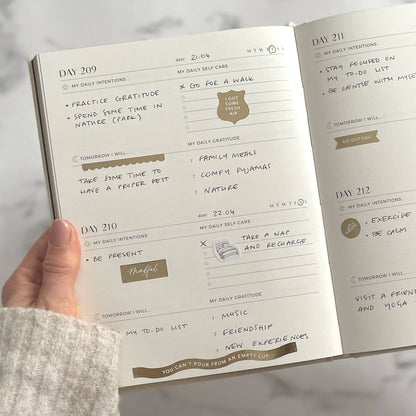 DAY 209
date: 21.04
M T W T F S S
MY DAILY INTENTIONS
• PRACTICE GRATITUDE
• SPEND SOME TIME IN
NATURE (PARK)
MY DAILY SELF-CARE
X GO FOR A WALK
I GOT
SOME
FRESH
AIR
TOMORROW I WILL...
TAKE SOME TIME TO
HAVE A PROPER REST
MY DAILY GRATITUDE
1 FAMILY MEALS
2 COMFY PYJAMAS
3 NATURE
DAY 210
date: 22.04
MY DAILY INTENTIONS
• BE PRESENT
Mindful
MY DAILY SELF-CARE
X TAKE A NAP
AND RECHARGE
TOMORROW I WILL...
MY TO-DO LIST
MY DAILY GRATITUDE
1 MUSIC
2 FRIENDSHIP
3 NEW EXPERIENCES
YOU CAN'T POUR FROM AN EMPTY CUP
DAY 211
MY DAILY INTENTIONS
• STAY FOCUSED ON
MY TO-DO LIST
• BE GENTLE WITH MYSE
TOMORROW I WILL...
GO OUTSIDE
DAY 212
MY DAILY INTENTIONS
• EXERCISE
• BE CALM
TOMORROW I WILL...
VISIT A FRIEND
AND YOGA